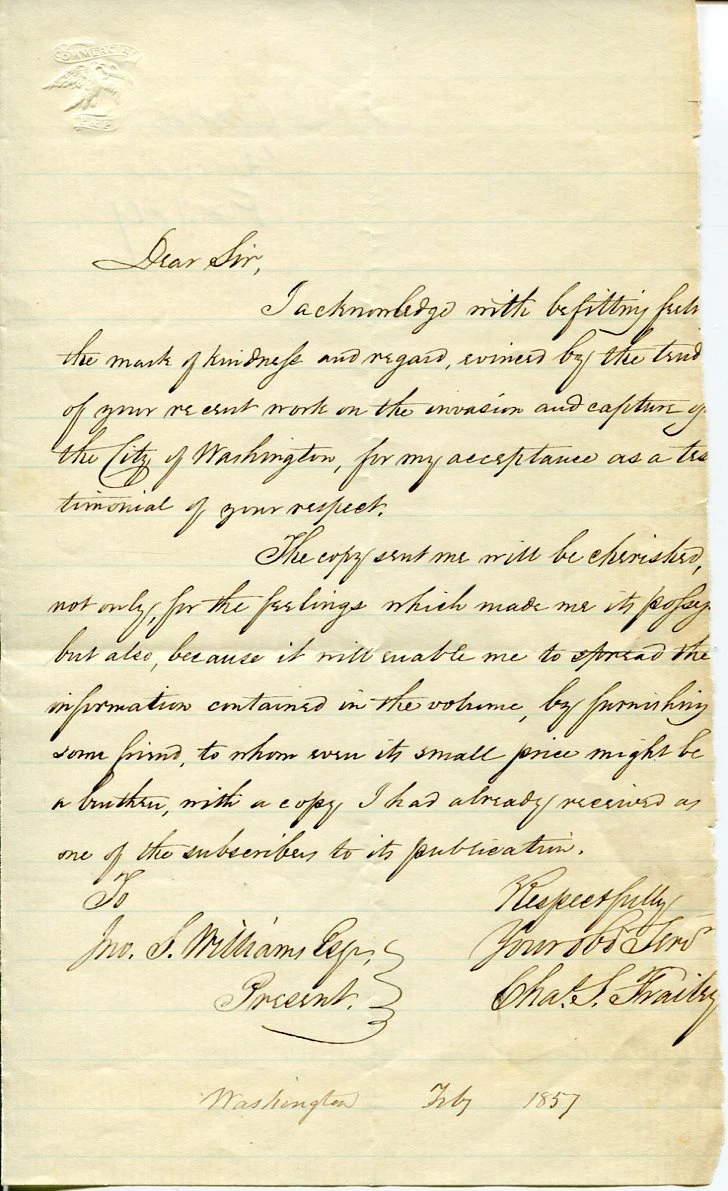 COMMERCIAL
Dear Sir,
I acknowledge with befitting feel
the mark of kindness and regard, evinced by the tend
of your recent work on the invasion and capture of
the City of Washington, for my acceptance as a tes
timonial of your respect.
The copy sent me will be cherished,
not only, for the feelings which made me its posses
but also, because it will enable me to spread the
information contained in the volume, by furnishing
some friend, to whom even its small price might be
a burthen, with a copy I had already received as
one of the subscribers to its publication.
To
Respectfully
Jno. S. Williams Esqr.
Your obd Servt
Present.
Chas. S. Frailey
Washington Feby 1857